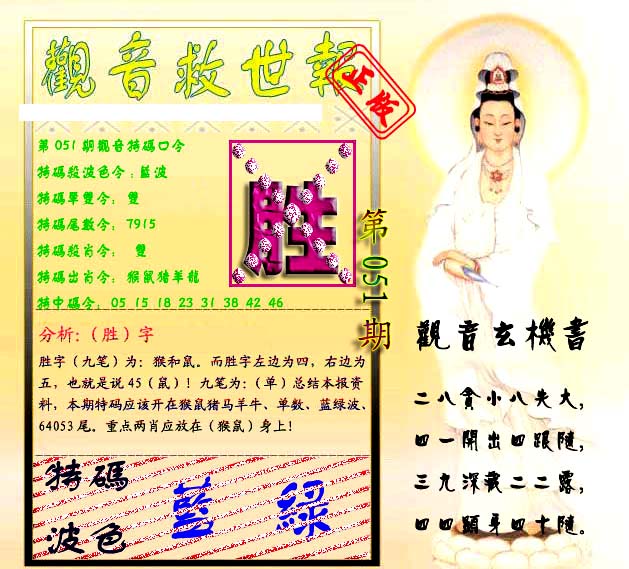 觀音救世報
正版
第051期觀音特碼口令
特碼殺波色令:藍波
特碼單雙令: 雙
特碼尾數令: 7915
特碼殺肖令: 雙
特碼出肖令: 猴鼠猪羊龍
特中碼令: 05 15 18 23 31 38 42 46
胜
第051期
分析:(胜)字
胜字(九笔)为:猴和鼠。而胜字左边为四,右边为
五,也就是说45(鼠)!九笔为:(单)总结本报资
料,本期特码应该开在猴鼠猪马羊牛、单数、蓝绿波、
64053尾。重点两肖应放在(猴鼠)身上!
特碼
波色
藍 綠
觀音玄機書
二八貪小八失大,
四一開出四跟隨,
三九深藏二二露,
四四顯身四十隨。